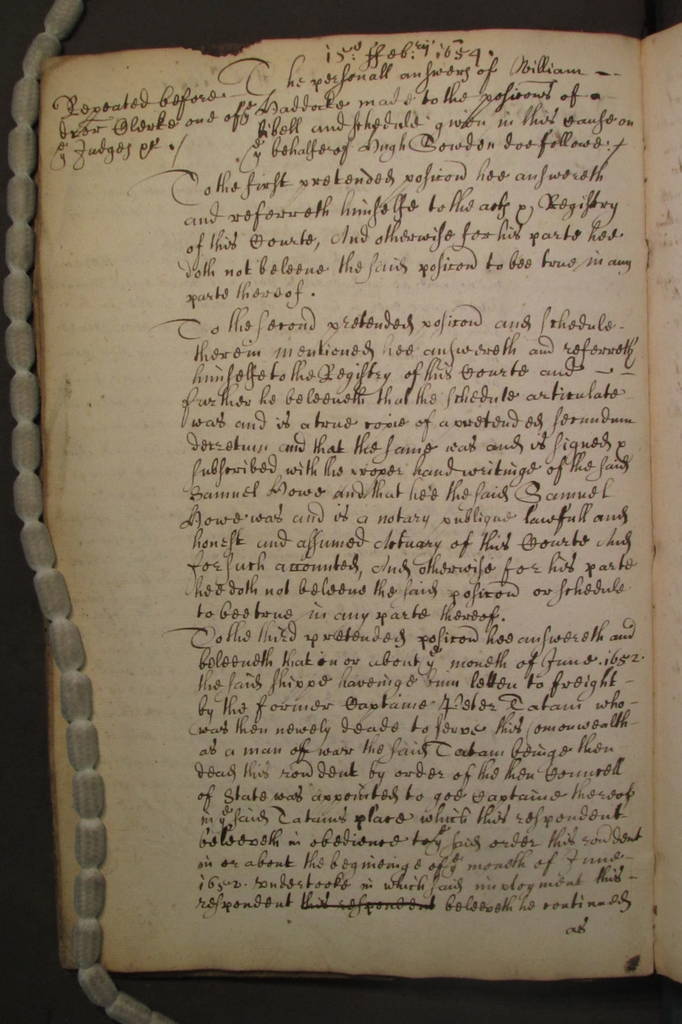 15th. ffeb:ry 1654.
Repeated before
drer Clerke one of
ye Judges pr ./
The personall answers of William
Haddocke made to the posicons of a
libell and schedule given in this cause on
ye behalfe of Hugh Sowden doe followe:/
To the first pretended posicon hee answereth
and referreth himselfe to the acts Registry
of this Courte, And otherwise for his parte hee
doth not beleeve the said posicon to bee true in any
parte thereof.
To the second pretended posicon and schedule
therein mentioned hee answereth and referreth
himselfe to the Registry of this Courte and
further he beleeveth that the schedule articulate
was and is a true copie of a pretended secundum
decretum and that the same was and is signed
subscribed with the proper hand writinge of the said
Samuel Howe and that hee the said Samuel
Howe was and is a notary publique lawfull and
honest and assumed Actuary of this Courte And
for such accounted, And otherwise for his parte
hee doth not beleeve the said posicon or schedule
to bee true in any parte thereof.
To the third pretended posicon hee answereth and
beleeveth that in or about ye moneth of June .1652.
the said shippe haveinge bin letten to freight
by the former Captaine Peter Tatam who
was then newely deade to serve this Comonwealth
as a man off warr the said Tatam beinge then
dead this rondent by order of the then Councell
of State was appointed to goe Captaine thereof
in ye said Tatams place which this respondent
beleeveth in obedience to ye said order this rondent
in or about the begineinge of ye moneth of June
1652. undertooke in which said imployment this
respondent this respondent beleeveth he continued
as